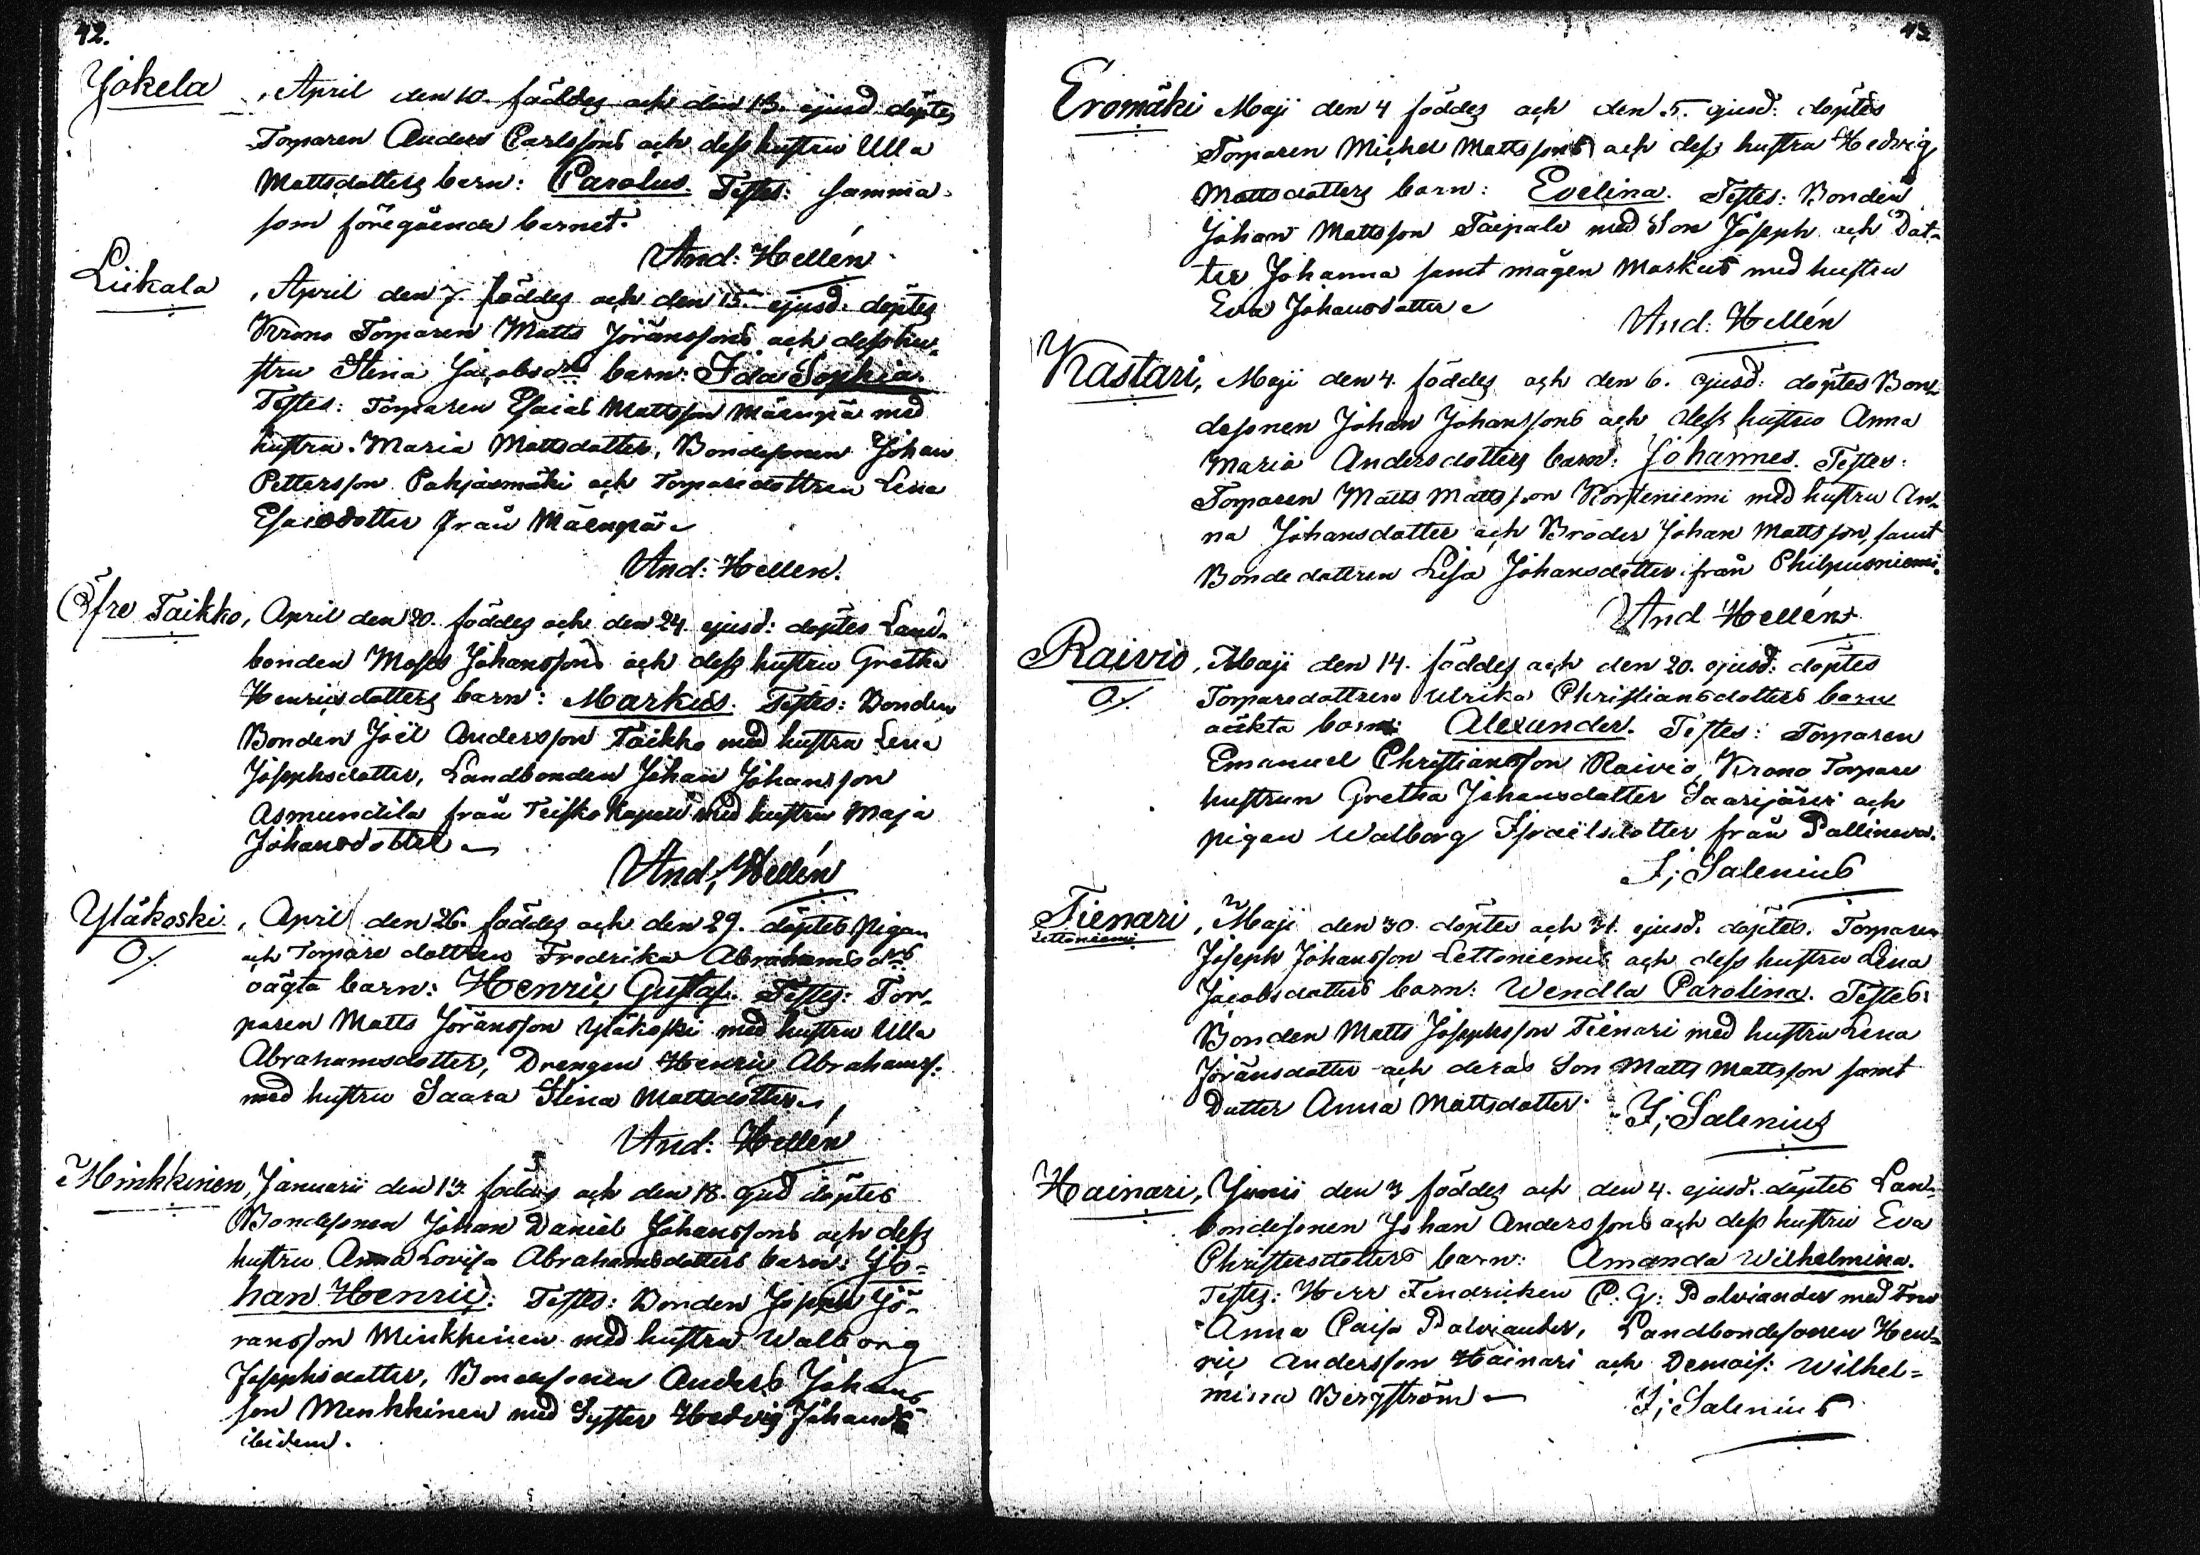 42.
Yökela, April den 10. föddes och den 13. ejusd döptes
Torparen Anders Carlssons och dess hustru Ulla
Mattsdotters barn: Carolus. Testes: samma
som föregående barnet.
And: Hellén
Liikala, April den 7. föddes och den 15. ejusd: döptes
Krono Torparen Matts Jöranssons och dess hu-
stru Stina Jacobsdrs barn: Ida Sophia.
Testes: Torparen Esaias Mattsson Mäenpä med
hustru Maria Mattsdotter, Bondesonen Johan
Pettersson Pohjasmäki och Torparedottren Lena
Esaiedotter från Mäenpä
And: Hellén.
Öfre Taikko, April den 20. föddes och den 24. ejusd: döptes Land-
bonden Moses Johanssons och dess hustru Gretha
Henricsdotters barn: Markus. Testes: Bonden
Bonden Joël Andersson Taikko med hustru Lena
Josephsdotter, Landbonden Johan Johansson
Asmundila från Teisko Kapell med hustru Maja
Johansdotter
And: Hellén
Yläkoski, April den 26. föddes och den 29. döptes Pigan
O/. och Torpare dottren Fredrika Abrahamsdrs
oägta barn: Henric Gustaf. Testes: Tor-
paren Matts Jöransson Yläkoski med hustru Ulla
Abrahamsdotter, Drengen Henric Abrahamss.
med hustru Saara Stina Mattsdotter
And: Hellén
Minkkinen, Januarii den 13. föddes och den 18. ejusd döptes
Bondesonen Johan Daniel Johanssons och dess
hustru Anna Lovisa Abrahamsdotters barn: Jo-
han Henric: Testes: Bonden Joseph Jö-
ransson Minkkinen med hustru Walborg
Josephsdotter, Bondesonen Anders Johans
son Menkkinen med Syster Hedvig Johansdr
ibidem.
43
Eromäki Maji den 4 föddes och den 5. ejusd: döptes
Torparen Michel Mattssons och dess hustru Hedvig
Mattsdotters barn: Evelina. Testes: Bonden
Johan Mattsson Taipale med Son Joseph och Dot-
ter Johanna samt mågen Markus med hustru
Eva Johansdotter
And: Hellén
Kastari, Maji den 4. föddes och den 6. ejusd: döptes Bon-
desonen Johan Johanssons och dess hustru Anna
Maria Andersdotters barn: Johannes. Testes:
Torparen Matts Mattsson Korteniemi med hustru An-
na Johansdotter och Broder Johan Mattsson, samt
Bondedottren Lisa Johansdotter från Philpusniemi.
And Hellén
Raivio, Maji den 14. föddes och den 20. ejusd: döptes
O/. Torparedottren Ulrika Christiansdotters barn
oäkta barn: Alexander. Testes: Torparen
Emanuel Christiansson Raivio, Krono Torpare
hustrun Gretha Johansdotter Saarijärvi och
pigan Walborg Israëlsdotter från Pallineva.
I; Salenius
Tienari, Maji den 30. döptes och 31. ejusd. döptes. Torparen
Lettoniemi Joseph Johansson Lettoniemis och dess hustru Lena
Jacobsdotters barn: Wendla Carolina. Testes:
Bonden Matts Josephsson Tienari med hustru Lena
Jöransdotter och deras Son Matts Mattsson samt
Dotter Anna Mattsdotter. I; Salenius
Hainari, Junii den 3 föddes och den 4. ejusd. döptes Lan-
bondesonen Johan Anderssons och dess hustru Eva
Christersdotters barn: Amanda Wilhelmina.
Testes: Herr Fendricken C: G: Palviander med Fru
Anna Caisa Palviander, Landbondesonen Hen-
ric Andersson Hainari och Demois: Wilhel-
mina Bergström I; Salenius